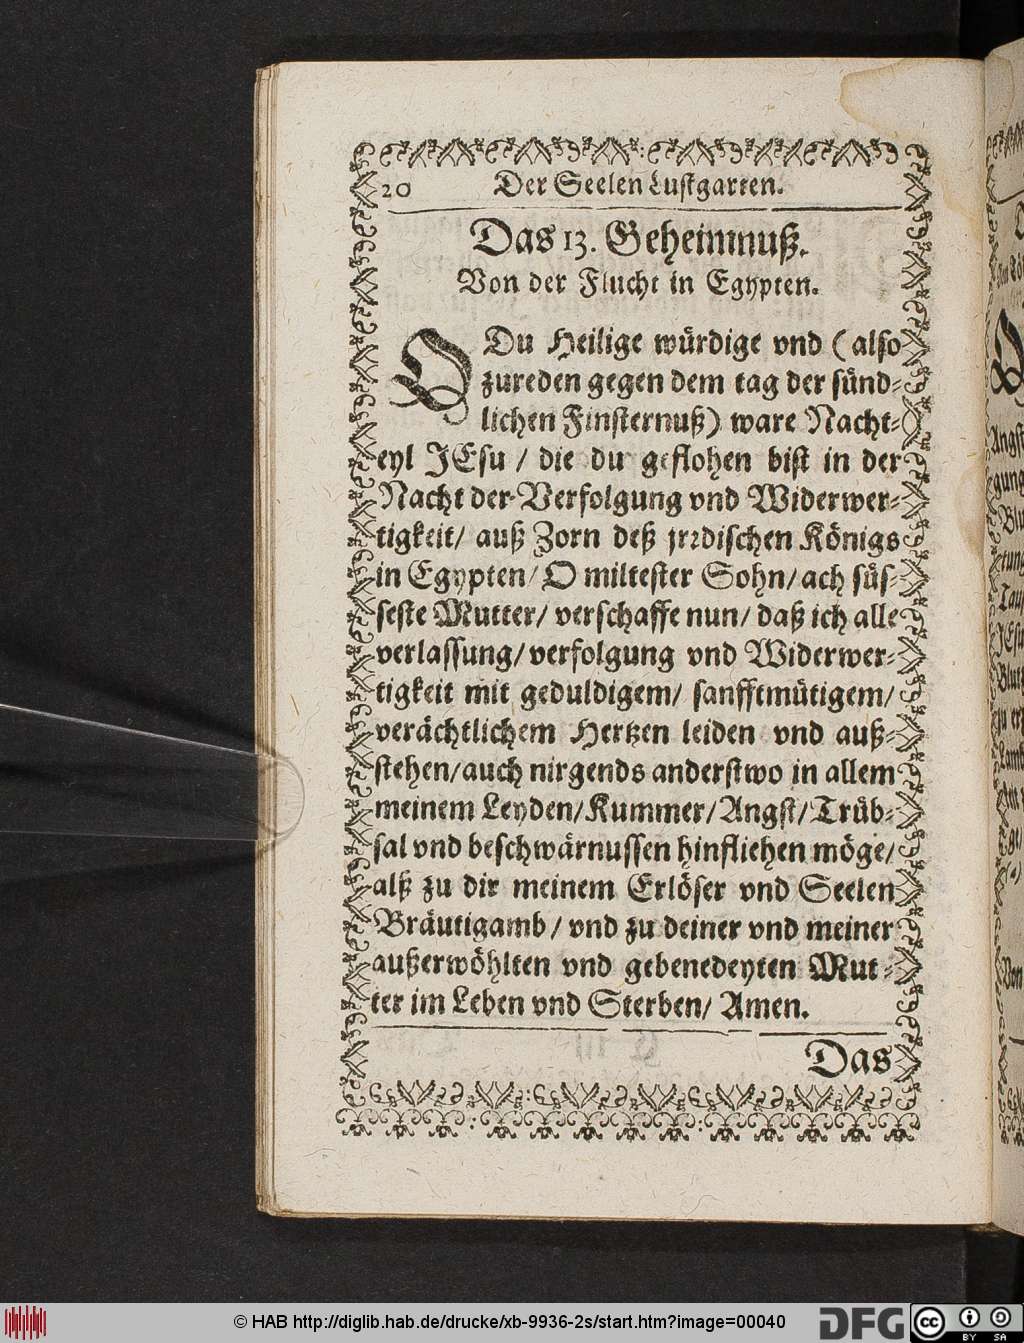 20 Der Seelen Lustgarten.
Das 13. Geheimnuß.
Von der Flucht in Egypten.
O Du Heilige würdige vnd (also
zureden gegen dem tag der sünd-
lichen Finsternuß) ware Nacht-
eyl JEsu / die du geflohen bist in der
Nacht der Verfolgung vnd Widerwer-
tigkeit/ auß Zorn deß jrrdischen Königs
in Egypten/ O miltester Sohn/ ach süs-
seste Mutter/ verschaffe nun/ daß ich alle
verlassung/ verfolgung vnd Widerwer-
tigkeit mit geduldigem/ sanfftmütigem/
verächtlichem Hertzen leiden vnd auß-
stehen/ auch nirgends anderstwo in allem
meinem Leyden/ Kummer/ Angst/ Trüb-
sal vnd beschwärnussen hinfliehen möge/
alß zu dir meinem Erlöser vnd Seelen
Bräutigamb / vnd zu deiner vnd meiner
außerwöhlten vnd gebenedeyten Mut-
ter im Leben vnd Sterben/ Amen.
Das
© HAB http://diglib.hab.de/drucke/xb-9936-2s/start.htm?image=00040
DFG
cc BY SA